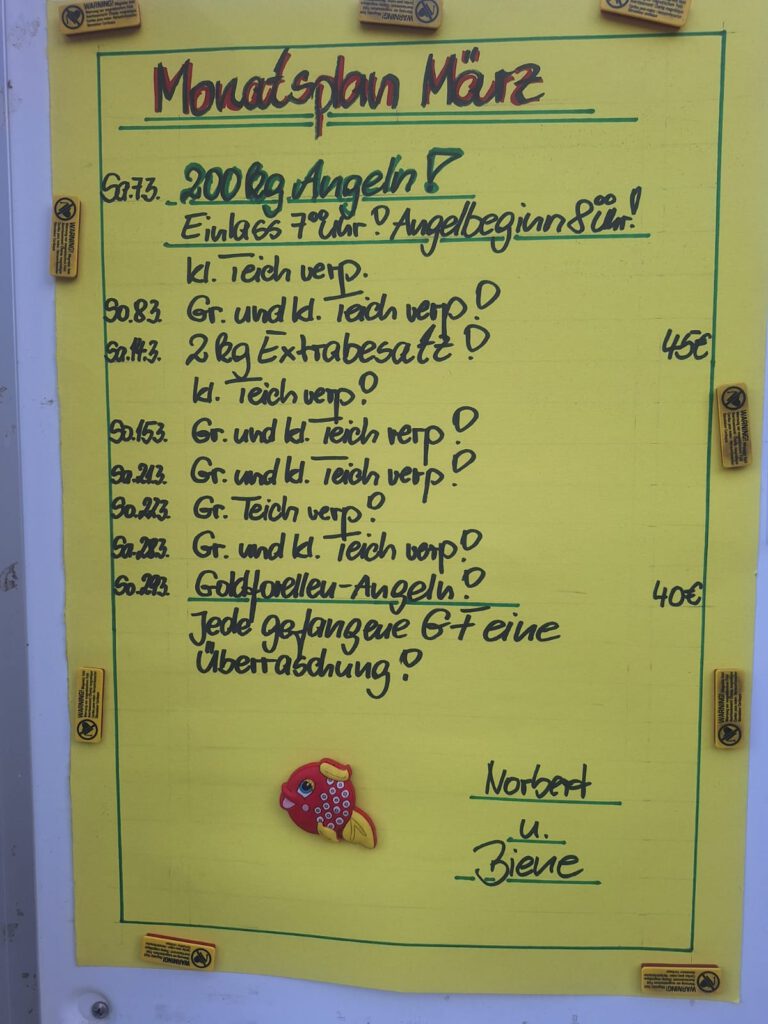 Monatsplan März
Sa.7.3. 200kg Angeln!
Einlass 7⁰⁰Uhr! Angelbeginn 8⁰⁰Uhr!
kl. Teich verp.
So.8.3. Gr. und kl. Teich verp!
Sa.14.3. 2kg Extrabesatz! 45€
kl. Teich verp!
So.15.3. Gr. und kl. Teich verp!
Sa.21.3. Gr. und kl. Teich verp!
So.22.3. Gr. Teich verp!
Sa.28.3. Gr. und kl. Teich verp!
So.29.3. Goldforellen-Angeln! 40€
Jede gefangene GF eine
Überraschung!
Norbert
u.
Biene
WARNING!
WARNING!
WARNING!
WARNING!
WARNING!
WARNING!
WARNING!
WARNING!
WARNING!